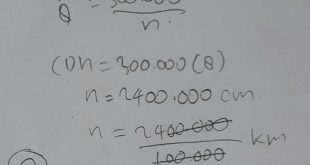 300.000
8 n.
(1)n = 300.000 (8)
n = 2400.000 cm.
n = 2400.000 km
100.000